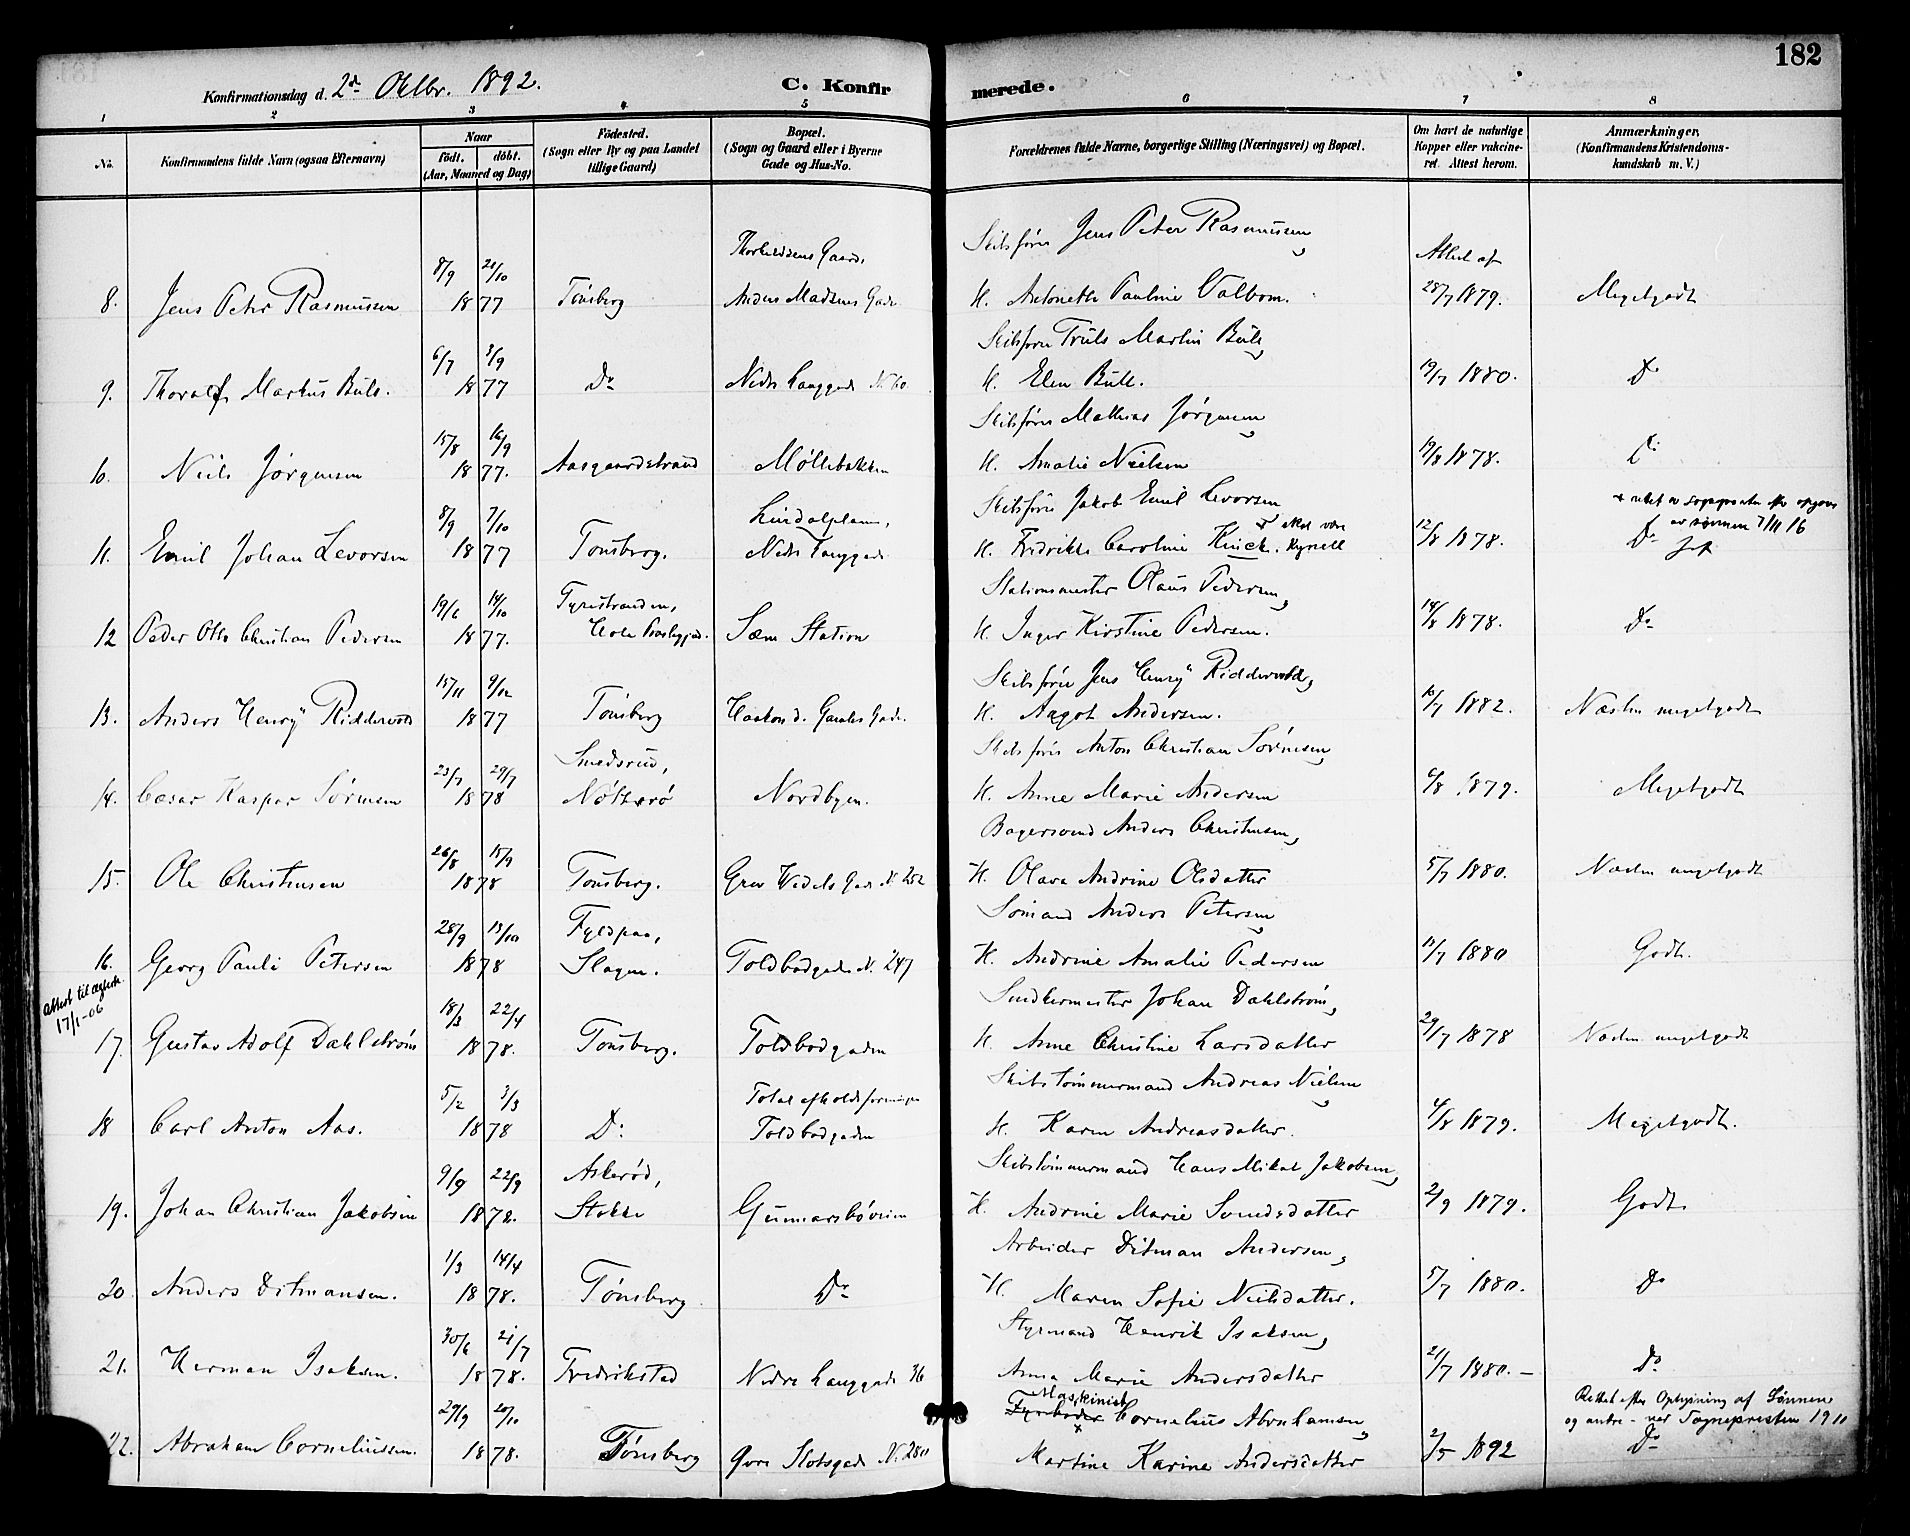 182
Konfirmationsdag d. 2den Oktbr. 1892.
C. Konfir merede.
1 2 3 4 5 6 7 8
No.
Konfirmandens fulde Navn (ogsaa Efternavn)
Naar
födt. döbt.
(Aar, Maaned og Dag)
Födested.
(Sogn eller By og paa Landet
tillige Gaard)
Bopæl.
(Sogn og Gaard eller i Byerne
Gade og Hus-No.
Forældrenes fulde Navne, borgerlige Stilling (Næringsvei) og Bopæl.
Om havt de naturlige
Kopper eller vakcine-
ret. Attest herom.
Anmærkninger,
(Konfirmandens Kristendoms-
kundskab m. V.)
Thorkildsens Gaard, Skibsfører Jens Peter Rasmussen, Attest af
8. Jens Peter Rasmussen 8/9 21/10 1877 Tönsberg Anders Madsens Gade H. Antonette Pauline Valbom. 28/7 1879. Megetgodt
Skibsfører Truls Martin Bule,
9. Thoralf Markus Bule. 6/7 3/9 1877 Do Nedre Langgade No 60. H. Elen Bull. 19/7 1880. Do
Skibsfører Mathias Jörgensen,
10. Niels Jörgensen 15/8 16/9 1877. Aasgaardstrand Möllebakken H. Amalie Nielsen 19/8 1878. Do
Lindalplann, Skibsfører Jakob Emil Levorsen, x rettet av sognepresten efter opgave
av sønnen 7/11 16
11. Emil Johan Levorsen 8/9 7/10 1877 Tönsberg. Nedre Langgade H. Fredrikke Caroline Kinck. x skal være Kynell 12/8 1878. Do
Fyrestranden, Stationsmester Olaus Pedersen,
12 Peder Otto Christian Pedersen 19/6 14/10 1877. Hole Præstegjeld. Sæm Station H. Inger Kirstine Pedersen. 14/8 1878. Do
Skibsfører Jens Henrÿ Riddervold,
13. Anders Henrÿ Riddervold 15/11 9/12 1877 Tönsberg Haakon d. Gamles Gade. H. Aagot Andersen. 10/7 1882. Næsten megetgodt
Smedsrud, Skibsfører Anton Christian Sörensen,
14. Cæsar Kaspar Sörensen 23/7 29/7 1878 Nötterö Nordbyen. H. Anne Marie Andersen 6/8 1879. Megetgodt
Bagersvend Anders Christensen,
15. Ole Christensen 26/8 15/9 1878 Tönsberg. Grev Wedels Gade No 252 H. Olava Andrine Olsdatter 5/7 1880. Næsten megetgodt
Fyldpaa, Sömand Anders Petersen,
16. Georg Pauli Petersen 28/9 13/10 1878 Slagen. Toldbodgade No. 247 H. Andrine Amalie Pedersen 10/7 1880 Godt.
Attest til ægtesk.
17/1-06
Snedkermester Johan Dahlström,
17. Gustav Adolf Dahlström 18/3 22/4 1878. Tönsberg. Toldbodgaden H. Anne Christine Larsdatter 29/7 1878 Næsten megetgodt
Totalafholdsforeningen Skibstömmermand Andreas Nielsen,
18 Carl Anton Aas. 5/2 3/3 1878 Do Toldbodgaden H. Karen Andreasdatter. 4/8 1879. Megetgodt.
Askeröd, Skibstömmermand Hans Mikal Jakobsen,
19. Johan Christian Jakobsen 9/9 22/9 1878. Stokke Gunnarsböveien H. Andrine Marie Svendsdatter 2/9 1879. Godt
Arbeider Ditman Andersen,
20. Anders Ditmansen. 1/3 14/4 1878. Tönsberg Do H. Maren Sofie Neilsdatter. 5/7 1880. Do
Styrmand Henrik Isaksen,
21. Herman Isaksen. 30/6 21/7 1878. Fredrikstad Nedre Langgade 36 Anna Marie Andersdatter 21/7 1880. — Do
Maskinist Rettet efter Oplysning af Sönnen
og andre – ved Sognepresten 1910
22. Abraham Corneliussen. 29/9 20/10 1878. Tönsberg Övre Slotsgade No. 280 Fyrböder Cornelius Abrahamsen, Martine Karine Andersdatter 2/5 1892 Do